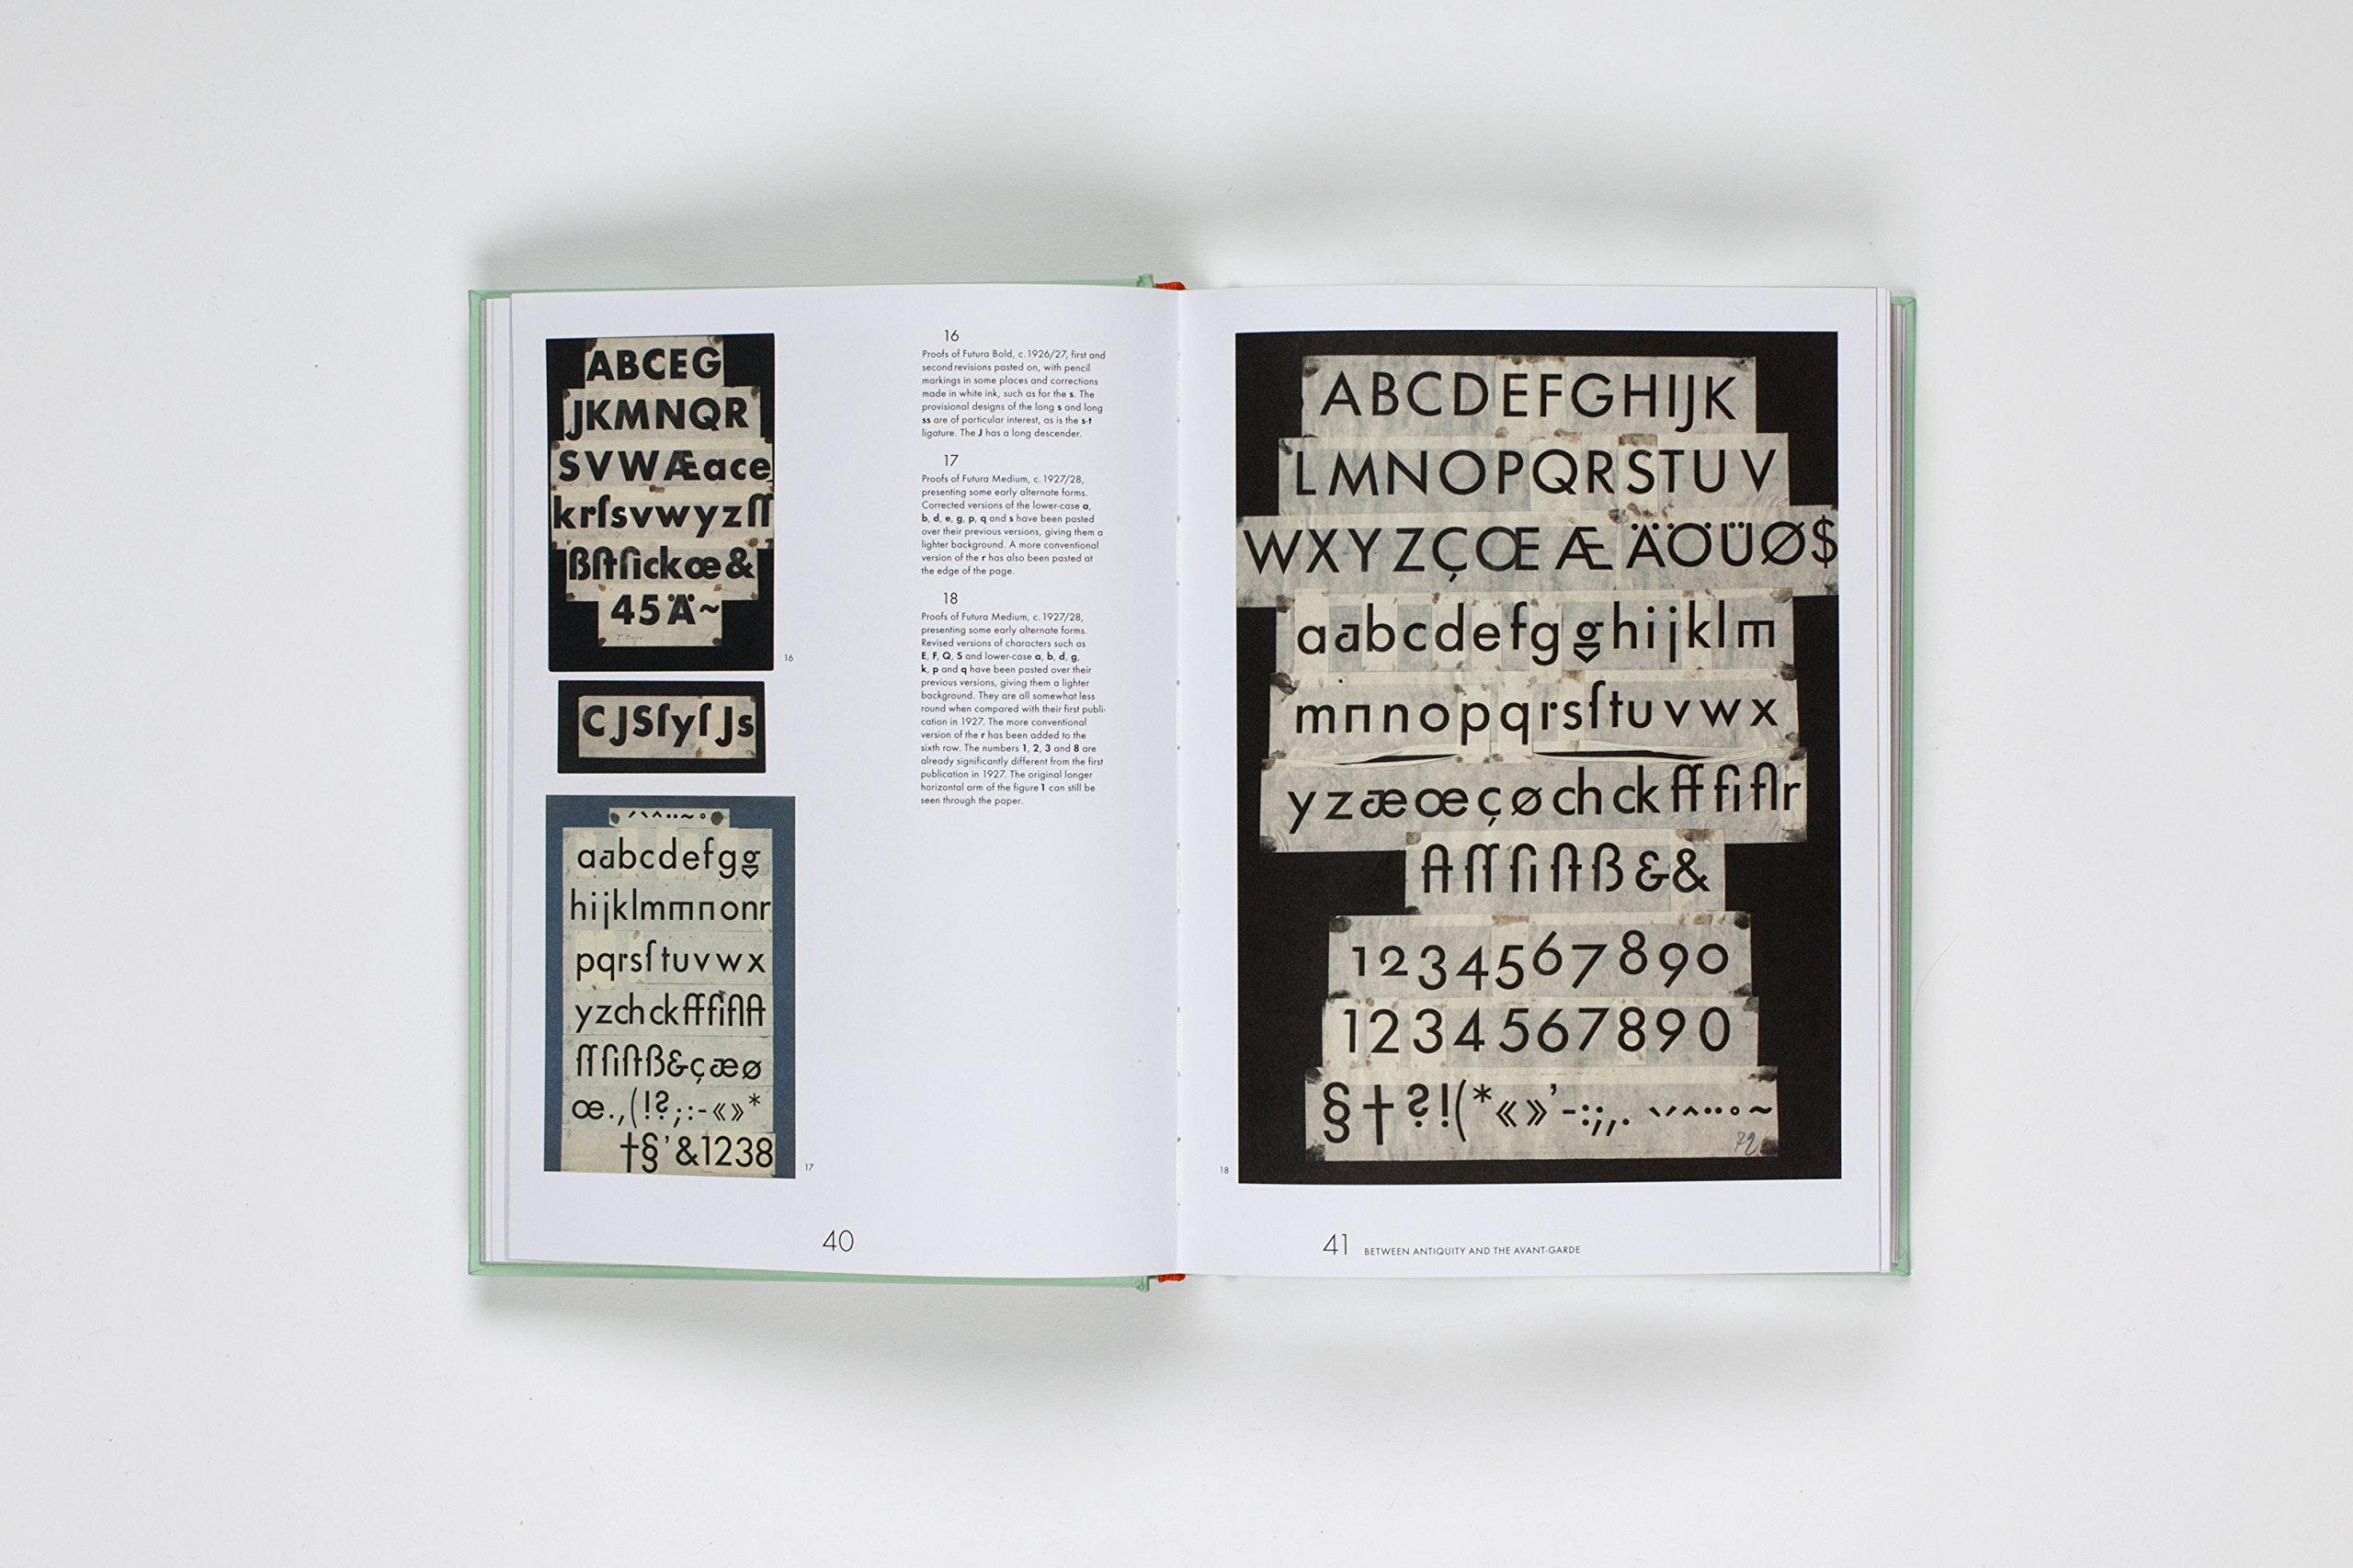 ABCEG
JKMNQR
SVWÆace
krſsvwyzſſ
ßſtſickœ&
45Ä~
16
CJSſyſJs
ˊˋˆ¨~°
aabcdefgg
hijklmmnnonr
pqrsſtuvwx
yzchckfffiflft
ſſſiſtß&çæø
œ.,(!?;:-«»*
†§’&1238
17
40
16
Proofs of Futura Bold, c. 1926/27, first and
second revisions pasted on, with pencil
markings in some places and corrections
made in white ink, such as for the s. The
provisional designs of the long s and long
ss are of particular interest, as is the s-t
ligature. The J has a long descender.
17
Proofs of Futura Medium, c. 1927/28,
presenting some early alternate forms.
Corrected versions of the lower-case a,
b, d, e, g, p, q and s have been pasted
over their previous versions, giving them a
lighter background. A more conventional
version of the r has also been pasted at
the edge of the page.
18
Proofs of Futura Medium, c. 1927/28,
presenting some early alternate forms.
Revised versions of characters such as
E, F, Q, S and lower-case a, b, d, g,
k, p and q have been pasted over their
previous versions, giving them a lighter
background. They are all somewhat less
round when compared with their first publi-
cation in 1927. The more conventional
version of the r has been added to the
sixth row. The numbers 1, 2, 3 and 8 are
already significantly different from the first
publication in 1927. The original longer
horizontal arm of the figure 1 can still be
seen through the paper.
ABCDEFGHIJK
LMNOPQRSTUV
WXYZÇŒÆÄÖÜØ$
aabcdefgghijklm
mnnopqrsſtuvwx
yzæœçøchckfffiflr
ftſſſiſtß&&
1234567890
1234567890
§†?!(*«»’-:;,. ˋˊˆ¨°~
72
18
41 BETWEEN ANTIQUITY AND THE AVANT-GARDE